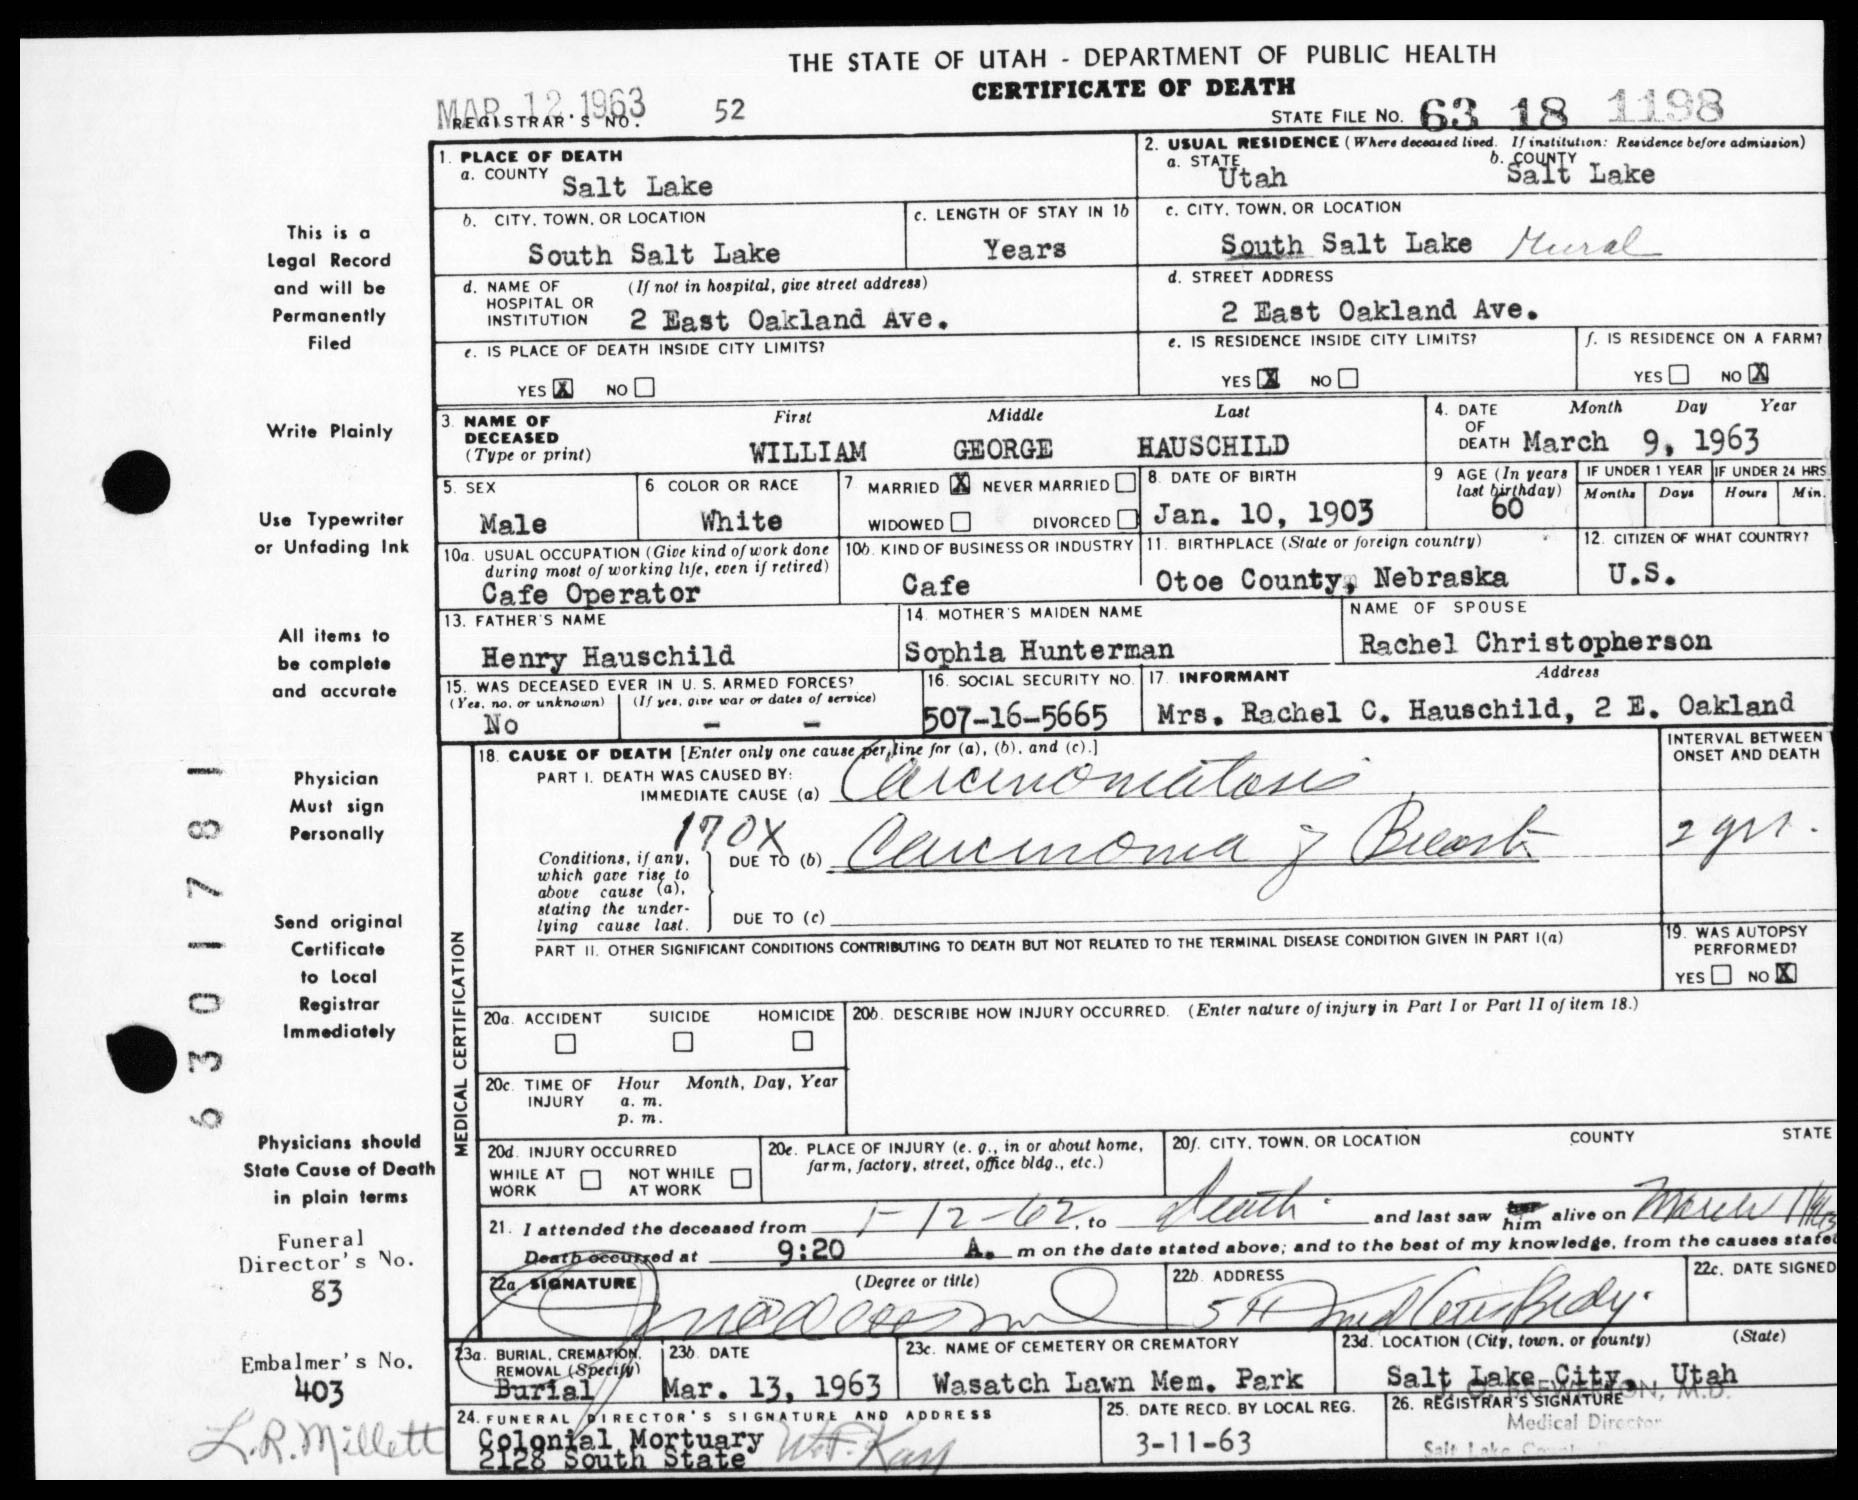 THE STATE OF UTAH - DEPARTMENT OF PUBLIC HEALTH
CERTIFICATE OF DEATH
MAR 12 1963
REGISTRAR'S NO. 52
STATE FILE NO. 63 18 1198
1. PLACE OF DEATH
a. COUNTY Salt Lake
2. USUAL RESIDENCE (Where deceased lived. If institution: Residence before admission)
a. STATE Utah b. COUNTY Salt Lake
b. CITY, TOWN, OR LOCATION South Salt Lake
c. LENGTH OF STAY IN 1b Years
c. CITY, TOWN, OR LOCATION South Salt Lake
d. NAME OF HOSPITAL OR INSTITUTION (If not in hospital, give street address) 2 East Oakland Ave.
d. STREET ADDRESS 2 East Oakland Ave.
e. IS PLACE OF DEATH INSIDE CITY LIMITS?
YES X NO
e. IS RESIDENCE INSIDE CITY LIMITS?
YES X NO
f. IS RESIDENCE ON A FARM?
YES NO X
3. NAME OF DECEASED (Type or print)
First Middle Last
WILLIAM GEORGE HAUSCHILD
4. DATE OF DEATH Month Day Year
March 9, 1963
5. SEX Male
6. COLOR OR RACE White
7. MARRIED X NEVER MARRIED
WIDOWED DIVORCED
8. DATE OF BIRTH Jan. 10, 1903
9 AGE (In years last birthday) 60
IF UNDER 1 YEAR Months Days
IF UNDER 24 HRS Hours Min.
10a. USUAL OCCUPATION (Give kind of work done during most of working life, even if retired) Cafe Operator
10b. KIND OF BUSINESS OR INDUSTRY Cafe
11. BIRTHPLACE (State or foreign country) Otoe County, Nebraska
12. CITIZEN OF WHAT COUNTRY? U.S.
13. FATHER'S NAME Henry Hauschild
14. MOTHER'S MAIDEN NAME Sophia Hunterman
NAME OF SPOUSE Rachel Christopherson
15. WAS DECEASED EVER IN U. S. ARMED FORCES?
(Yes, no, or unknown) (If yes, give war or dates of service)
No - -
16. SOCIAL SECURITY NO. 507-16-5665
17. INFORMANT Address
Mrs. Rachel C. Hauschild, 2 E. Oakland
MEDICAL CERTIFICATION
18. CAUSE OF DEATH [Enter only one cause per line for (a), (b), and (c).]
INTERVAL BETWEEN ONSET AND DEATH
PART I. DEATH WAS CAUSED BY:
IMMEDIATE CAUSE (a) Carcinomatosis
170X
Conditions, if any, which gave rise to above cause (a), stating the underlying cause last.
DUE TO (b) Carcinoma of Breast 2 yrs.
DUE TO (c)
PART II. OTHER SIGNIFICANT CONDITIONS CONTRIBUTING TO DEATH BUT NOT RELATED TO THE TERMINAL DISEASE CONDITION GIVEN IN PART I(a)
19. WAS AUTOPSY PERFORMED?
YES NO X
20a. ACCIDENT SUICIDE HOMICIDE
20b. DESCRIBE HOW INJURY OCCURRED. (Enter nature of injury in Part I or Part II of item 18.)
20c. TIME OF INJURY Hour Month, Day, Year
a. m.
p. m.
20d. INJURY OCCURRED
WHILE AT WORK NOT WHILE AT WORK
20e. PLACE OF INJURY (e. g., in or about home, farm, factory, street, office bldg., etc.)
20f. CITY, TOWN, OR LOCATION COUNTY STATE
21. I attended the deceased from 1-12-62, to Death and last saw him alive on March
Death occurred at 9:20 A. m on the date stated above; and to the best of my knowledge, from the causes stated
22a. SIGNATURE (Degree or title)
22b. ADDRESS
22c. DATE SIGNED
23a. BURIAL, CREMATION, REMOVAL (Specify) Burial
23b. DATE Mar. 13, 1963
23c. NAME OF CEMETERY OR CREMATORY Wasatch Lawn Mem. Park
23d. LOCATION (City, town, or county) (State)
Salt Lake City, Utah
24. FUNERAL DIRECTOR'S SIGNATURE AND ADDRESS
Colonial Mortuary
2128 South State
25. DATE RECD. BY LOCAL REG. 3-11-63
26. REGISTRAR'S SIGNATURE
Medical Director
Salt Lake
This is a
Legal Record
and will be
Permanently
Filed
Write Plainly
Use Typewriter
or Unfading Ink
All items to
be complete
and accurate
Physician
Must sign
Personally
Send original
Certificate
to Local
Registrar
Immediately
Physicians should
State Cause of Death
in plain terms
Funeral
Director's No.
83
Embalmer's No.
403
L.R. Millett
6301781